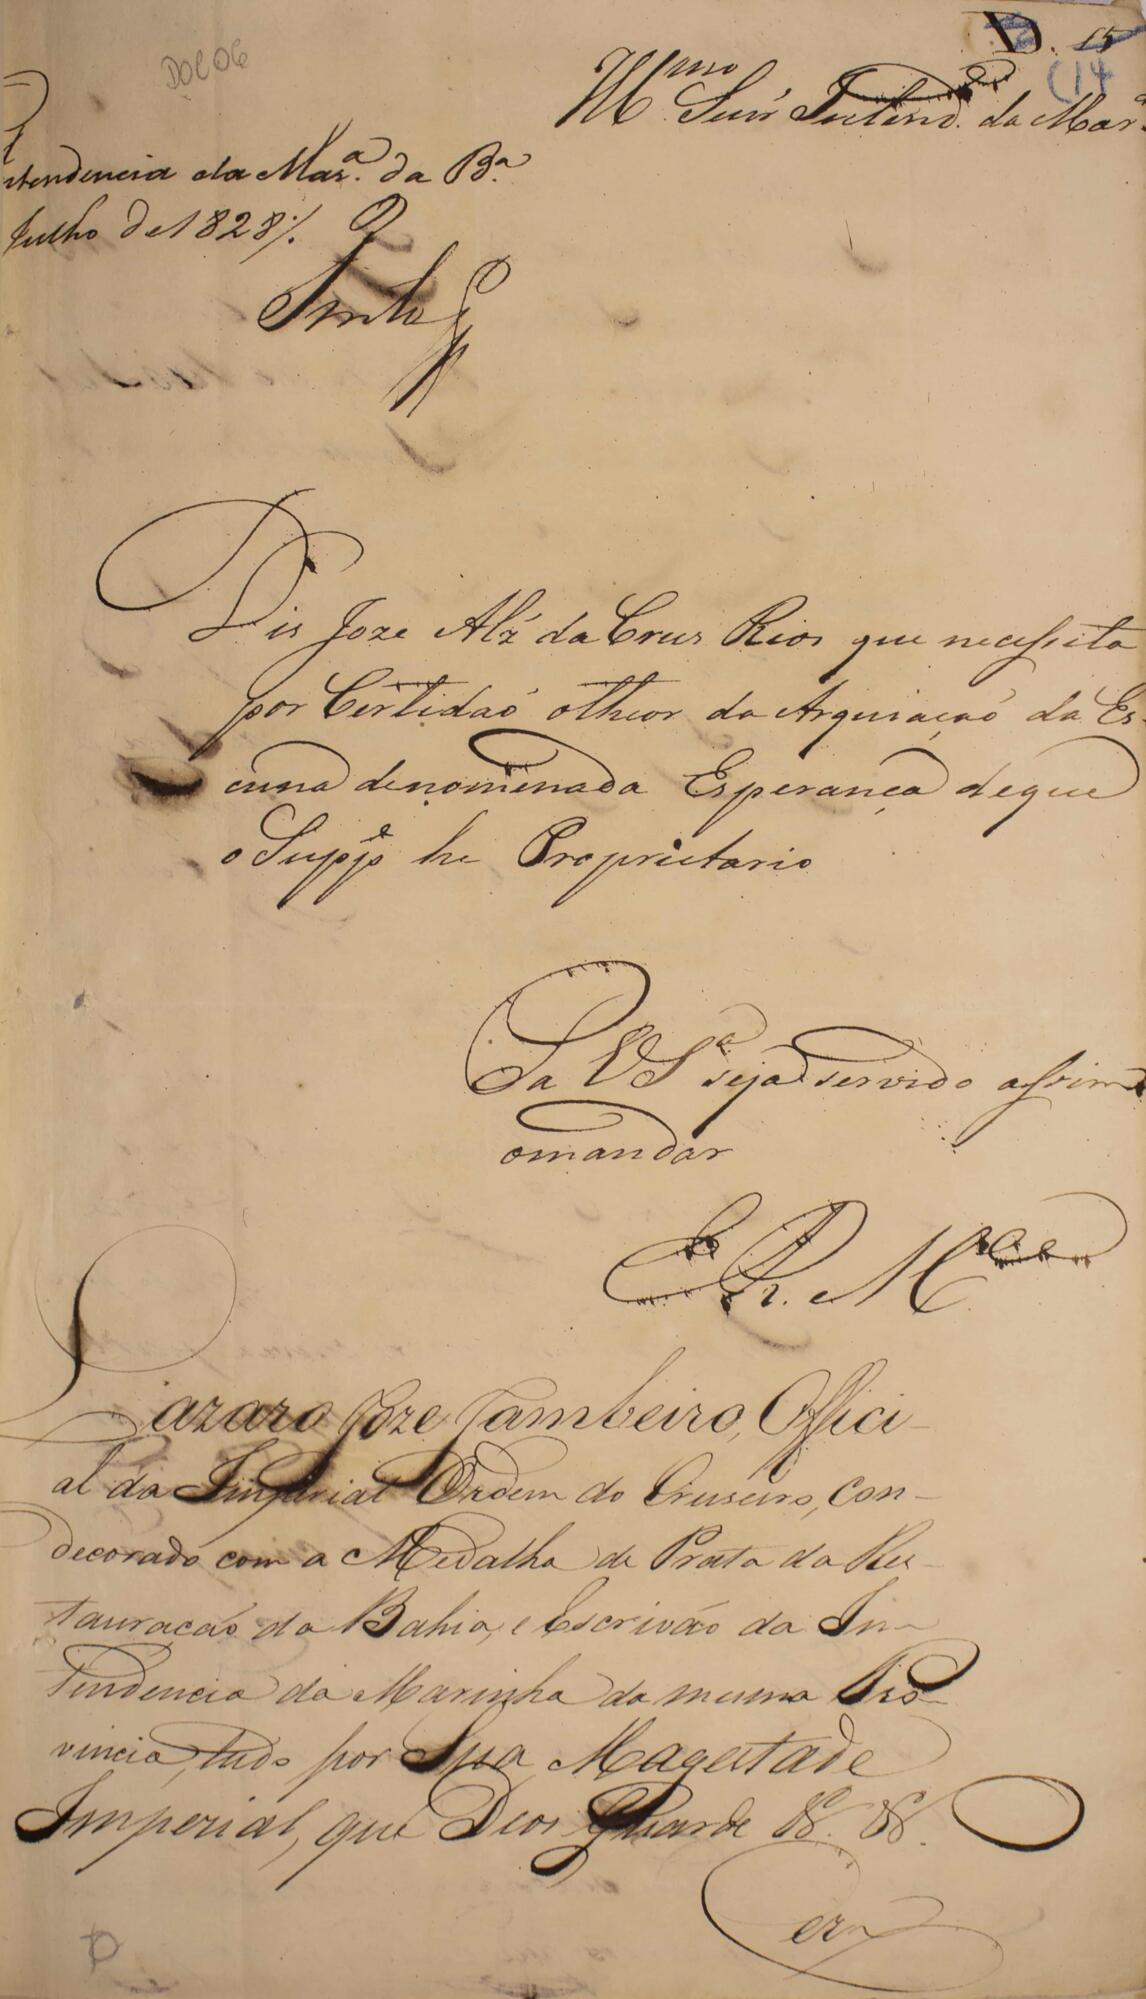 DOC 06
D. 15
(14
Illmo Snr Intend. da Mara
ntendencia da Mara. da Ba
Julho de 1828
Diz Joze Alz da Crus Rios que necessita
por Certidaõ otheor da Arquiaçaõ da Es-
cuna denomenada Esperança deque
o Suppe he Proprietario
Pa VSa seja servido assim
omandar
E R. Mce
Lazaro Joze Jambeiro, Offici-
al da Imperial Ordem do Cruseiro, con-
decorado com a Medalha de Prata da Res-
tauração da Bahia, e Escrivão da In-
tendencia da Marinha da mesma Pro-
vincia, tudo por Sua Magestade
Imperial, que Deos Guarde &. &.
Cer